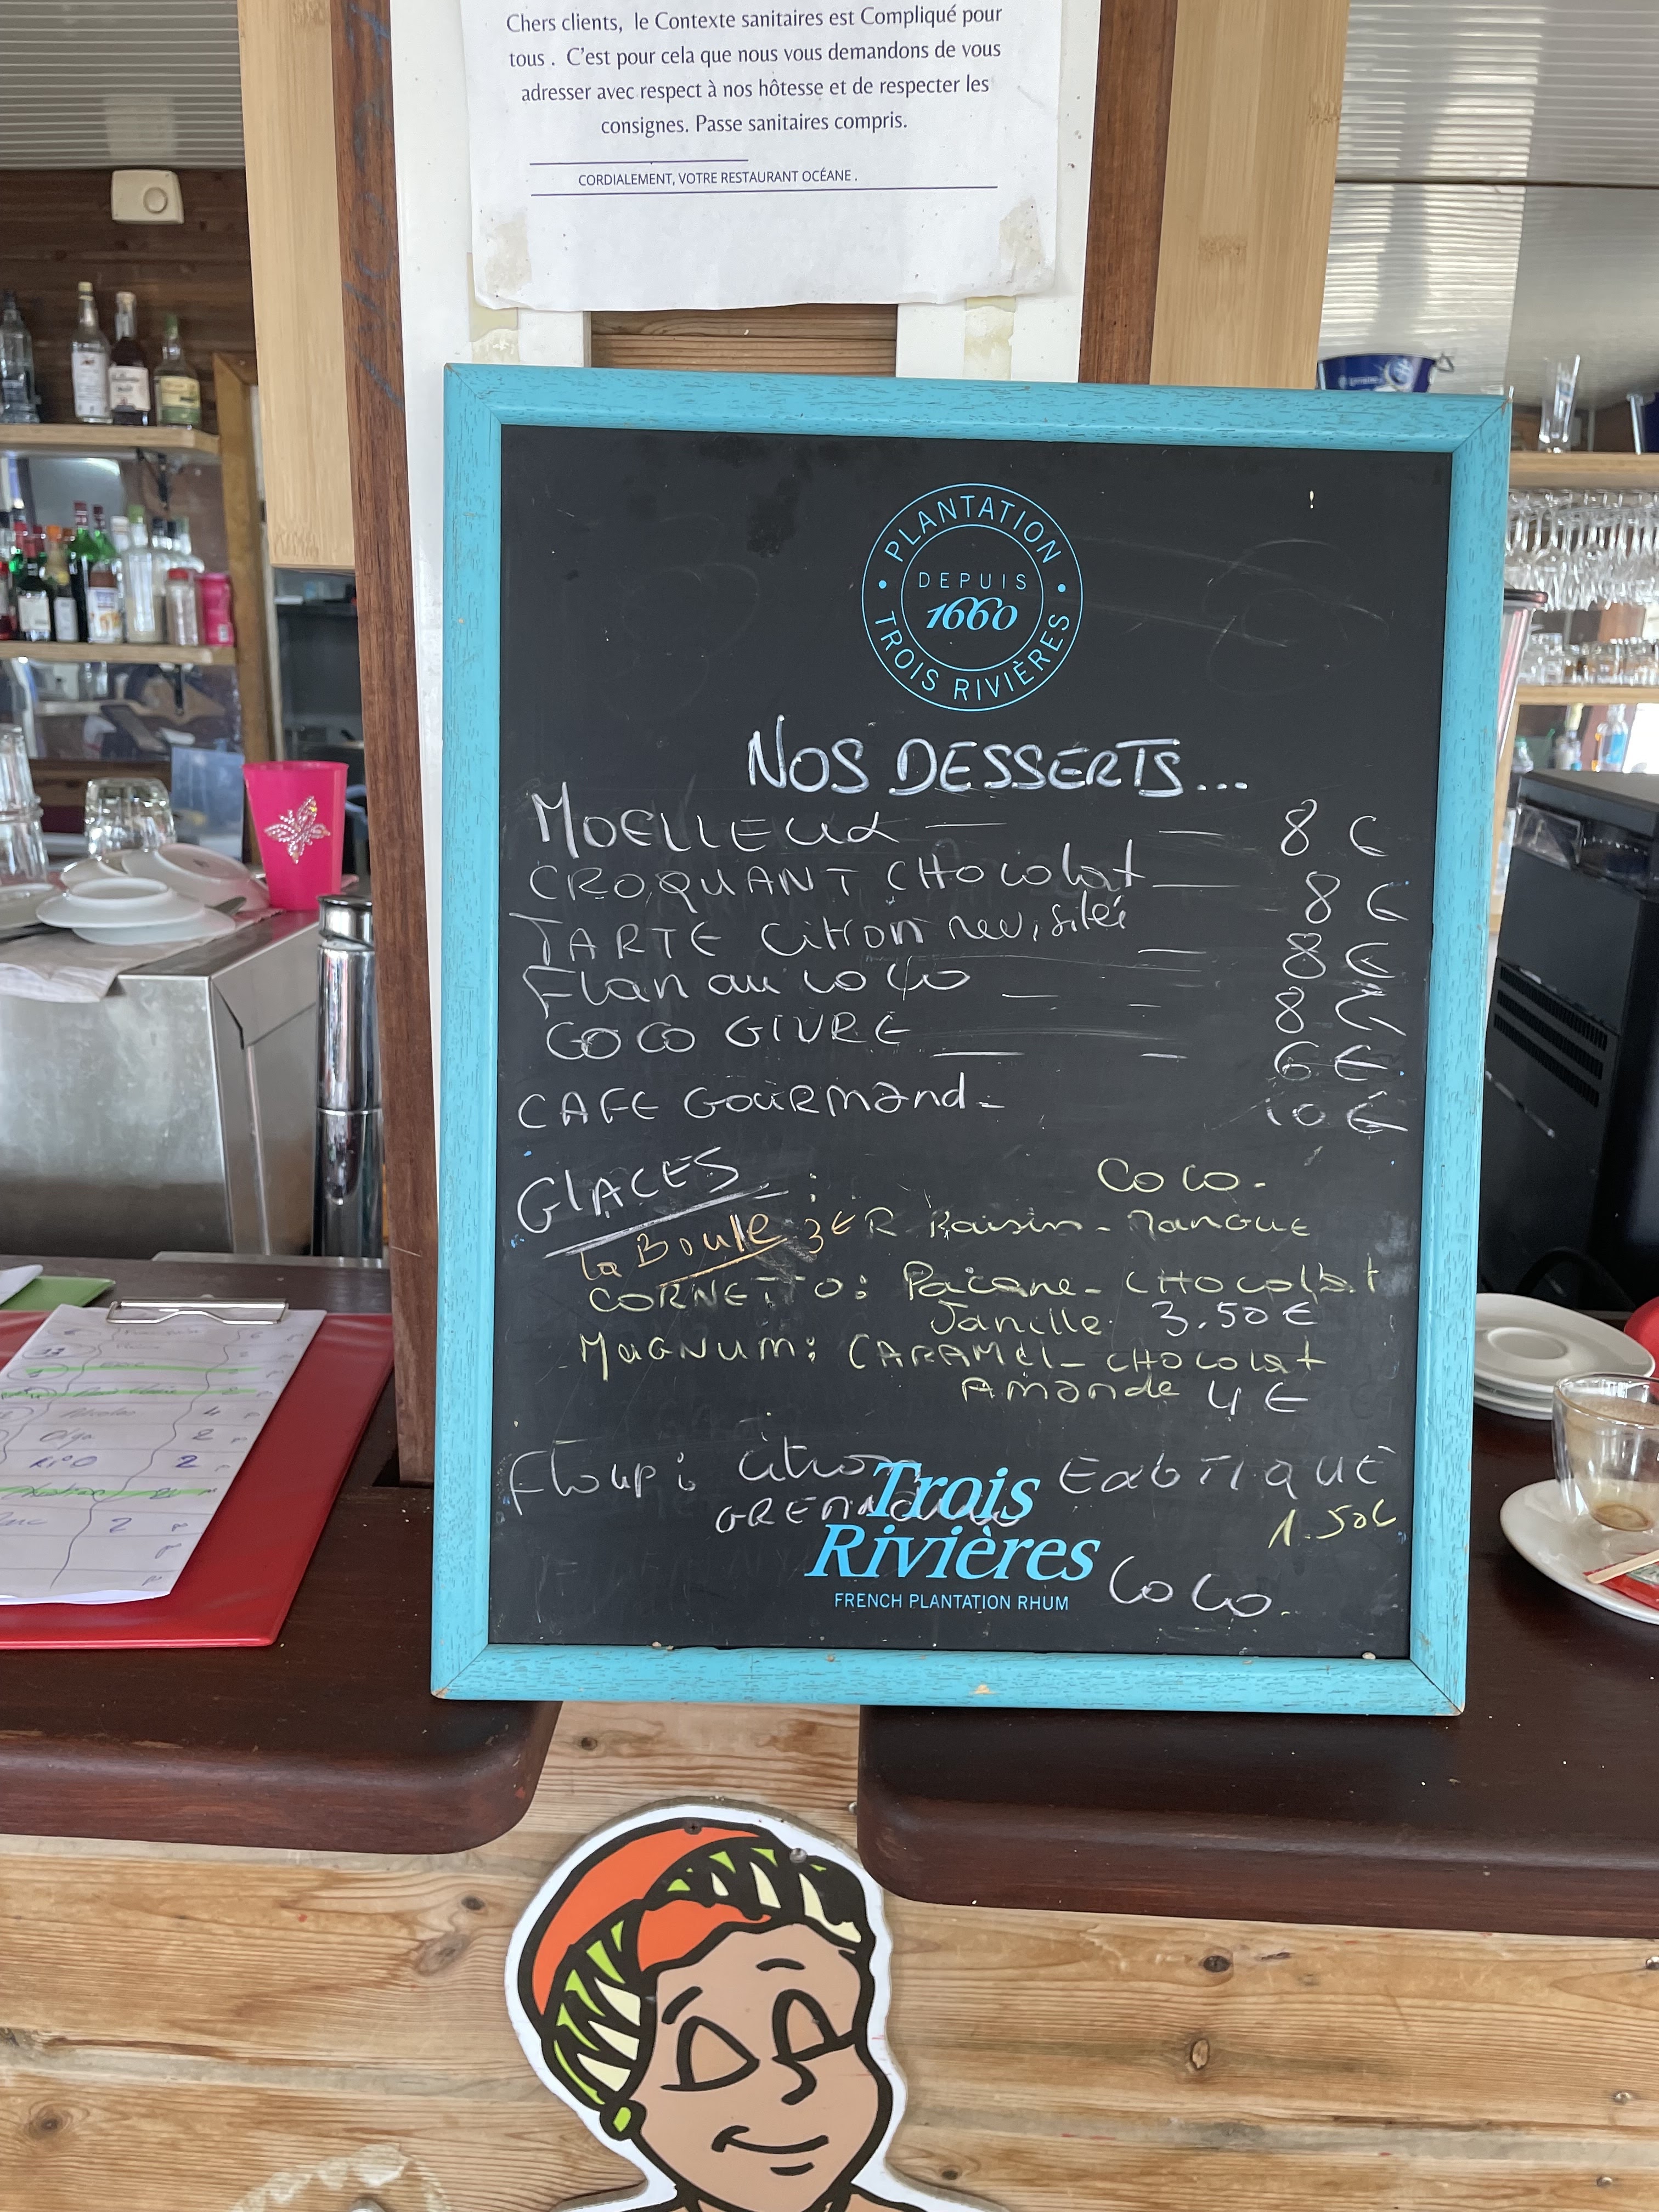 Chers clients, le Contexte sanitaires est Compliqué pour
tous . C'est pour cela que nous vous demandons de vous
adresser avec respect à nos hôtesse et de respecter les
consignes. Passe sanitaires compris.
CORDIALEMENT, VOTRE RESTAURANT OCÉANE .
PLANTATION
DEPUIS
1660
TROIS RIVIÈRES
NOS DESSERTS...
MOELLEUX — — 8 €
CROQUANT CHOCOLAT — 8 €
TARTE Citron revisitée — 8 €
Flan au coco — - 8 €
COCO GIVRE — - 6 €
CAFE GOURMAND - 10 €
GLACES :
COCO -
La Boule 3€ R Raisin - MANGUE
CORNETTO: Pacane - CHOCOLAT
Vanille 3.50 €
MAGNUM: CARAMEL - CHOCOLAT
Amande 4 €
Floup: citron EXOTIQUE
GRENADINE 1.50€
Trois
Rivières
COCO
FRENCH PLANTATION RHUM